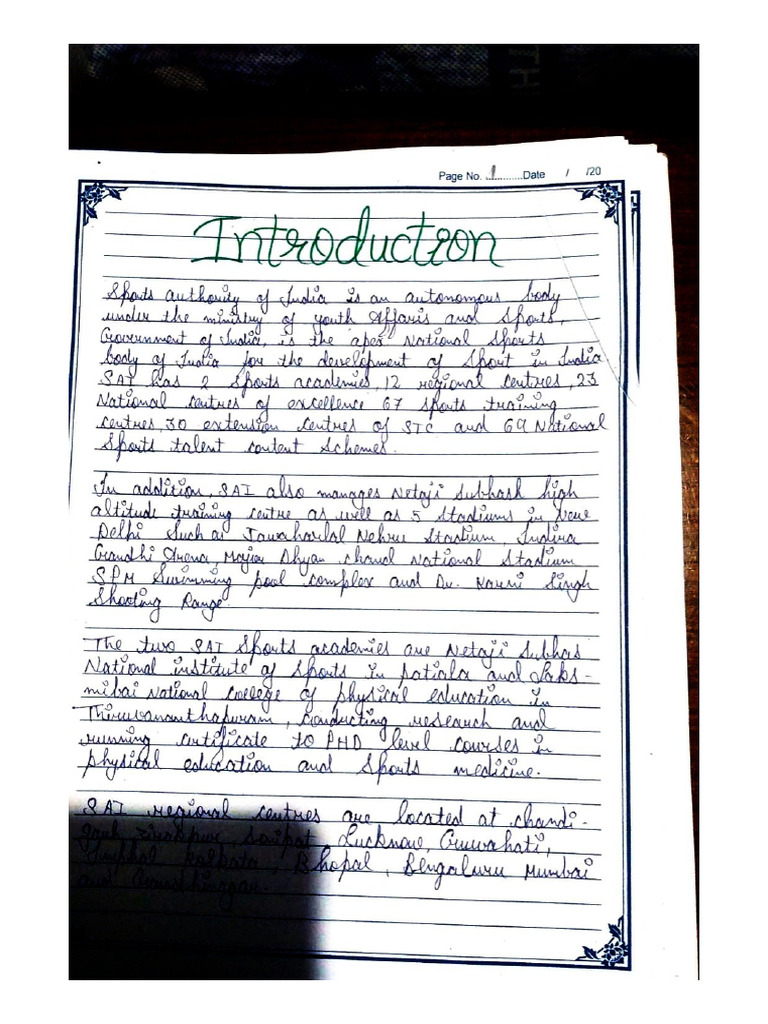 Page No. 1 Date / /20
Introduction
Sports authority of India is an autonomous body
under the ministry of youth Affaris and Sports,
Government of India, is the apex National Sports
body of India for the development of Sport in India
SAI has 2 Sports academies, 12 regional centres, 23
National centres of excellence 67 Sports training
centres, 30 extension centres of STC and 69 National
Sports talent content Schemes.
In addition, SAI also manages Netaji Subhash high
altitude training centre as well as 5 Stadiums in New
Delhi Such as Jawaharlal Nehru Stadium, Indira
Gandhi Arena, Major Dhyan chand National Stadium
SPM Swimming pool complex and Dr. Karni Singh
Shooting Range.
The two SAI Sports academies are Netaji Subhas
National institute of Sports in patiala and Laks-
mibai National college of physical education in
Thiruvananthapuram, conducting research and
running certificate to PHD level courses in
physical education and Sports medicine.
SAI regional centres are located at chandi-
garh zirakpur, Sonipat Lucknow, Guwahati,
Imphal kolkata, Bhopal, Bengaluru Mumbai
and Gandhinagar.